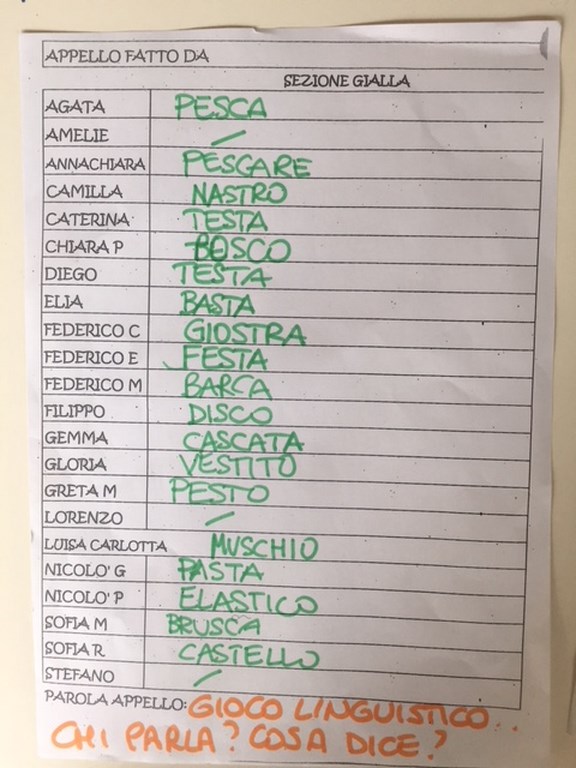 APPELLO FATTO DA
SEZIONE GIALLA
AGATA PESCA
AMELIE /
ANNACHIARA PESCARE
CAMILLA NASTRO
CATERINA TESTA
CHIARA P BOSCO
DIEGO TESTA
ELIA BASTA
FEDERICO C GIOSTRA
FEDERICO E FESTA
FEDERICO M BARCA
FILIPPO DISCO
GEMMA CASCATA
GLORIA VESTITO
GRETA M PESTO
LORENZO /
LUISA CARLOTTA MUSCHIO
NICOLO' G PASTA
NICOLO' P ELASTICO
SOFIA M BRUSCA
SOFIA R CASTELLO
STEFANO /
PAROLA APPELLO: GIOCO LINGUISTICO..
CHI PARLA? COSA DICE?